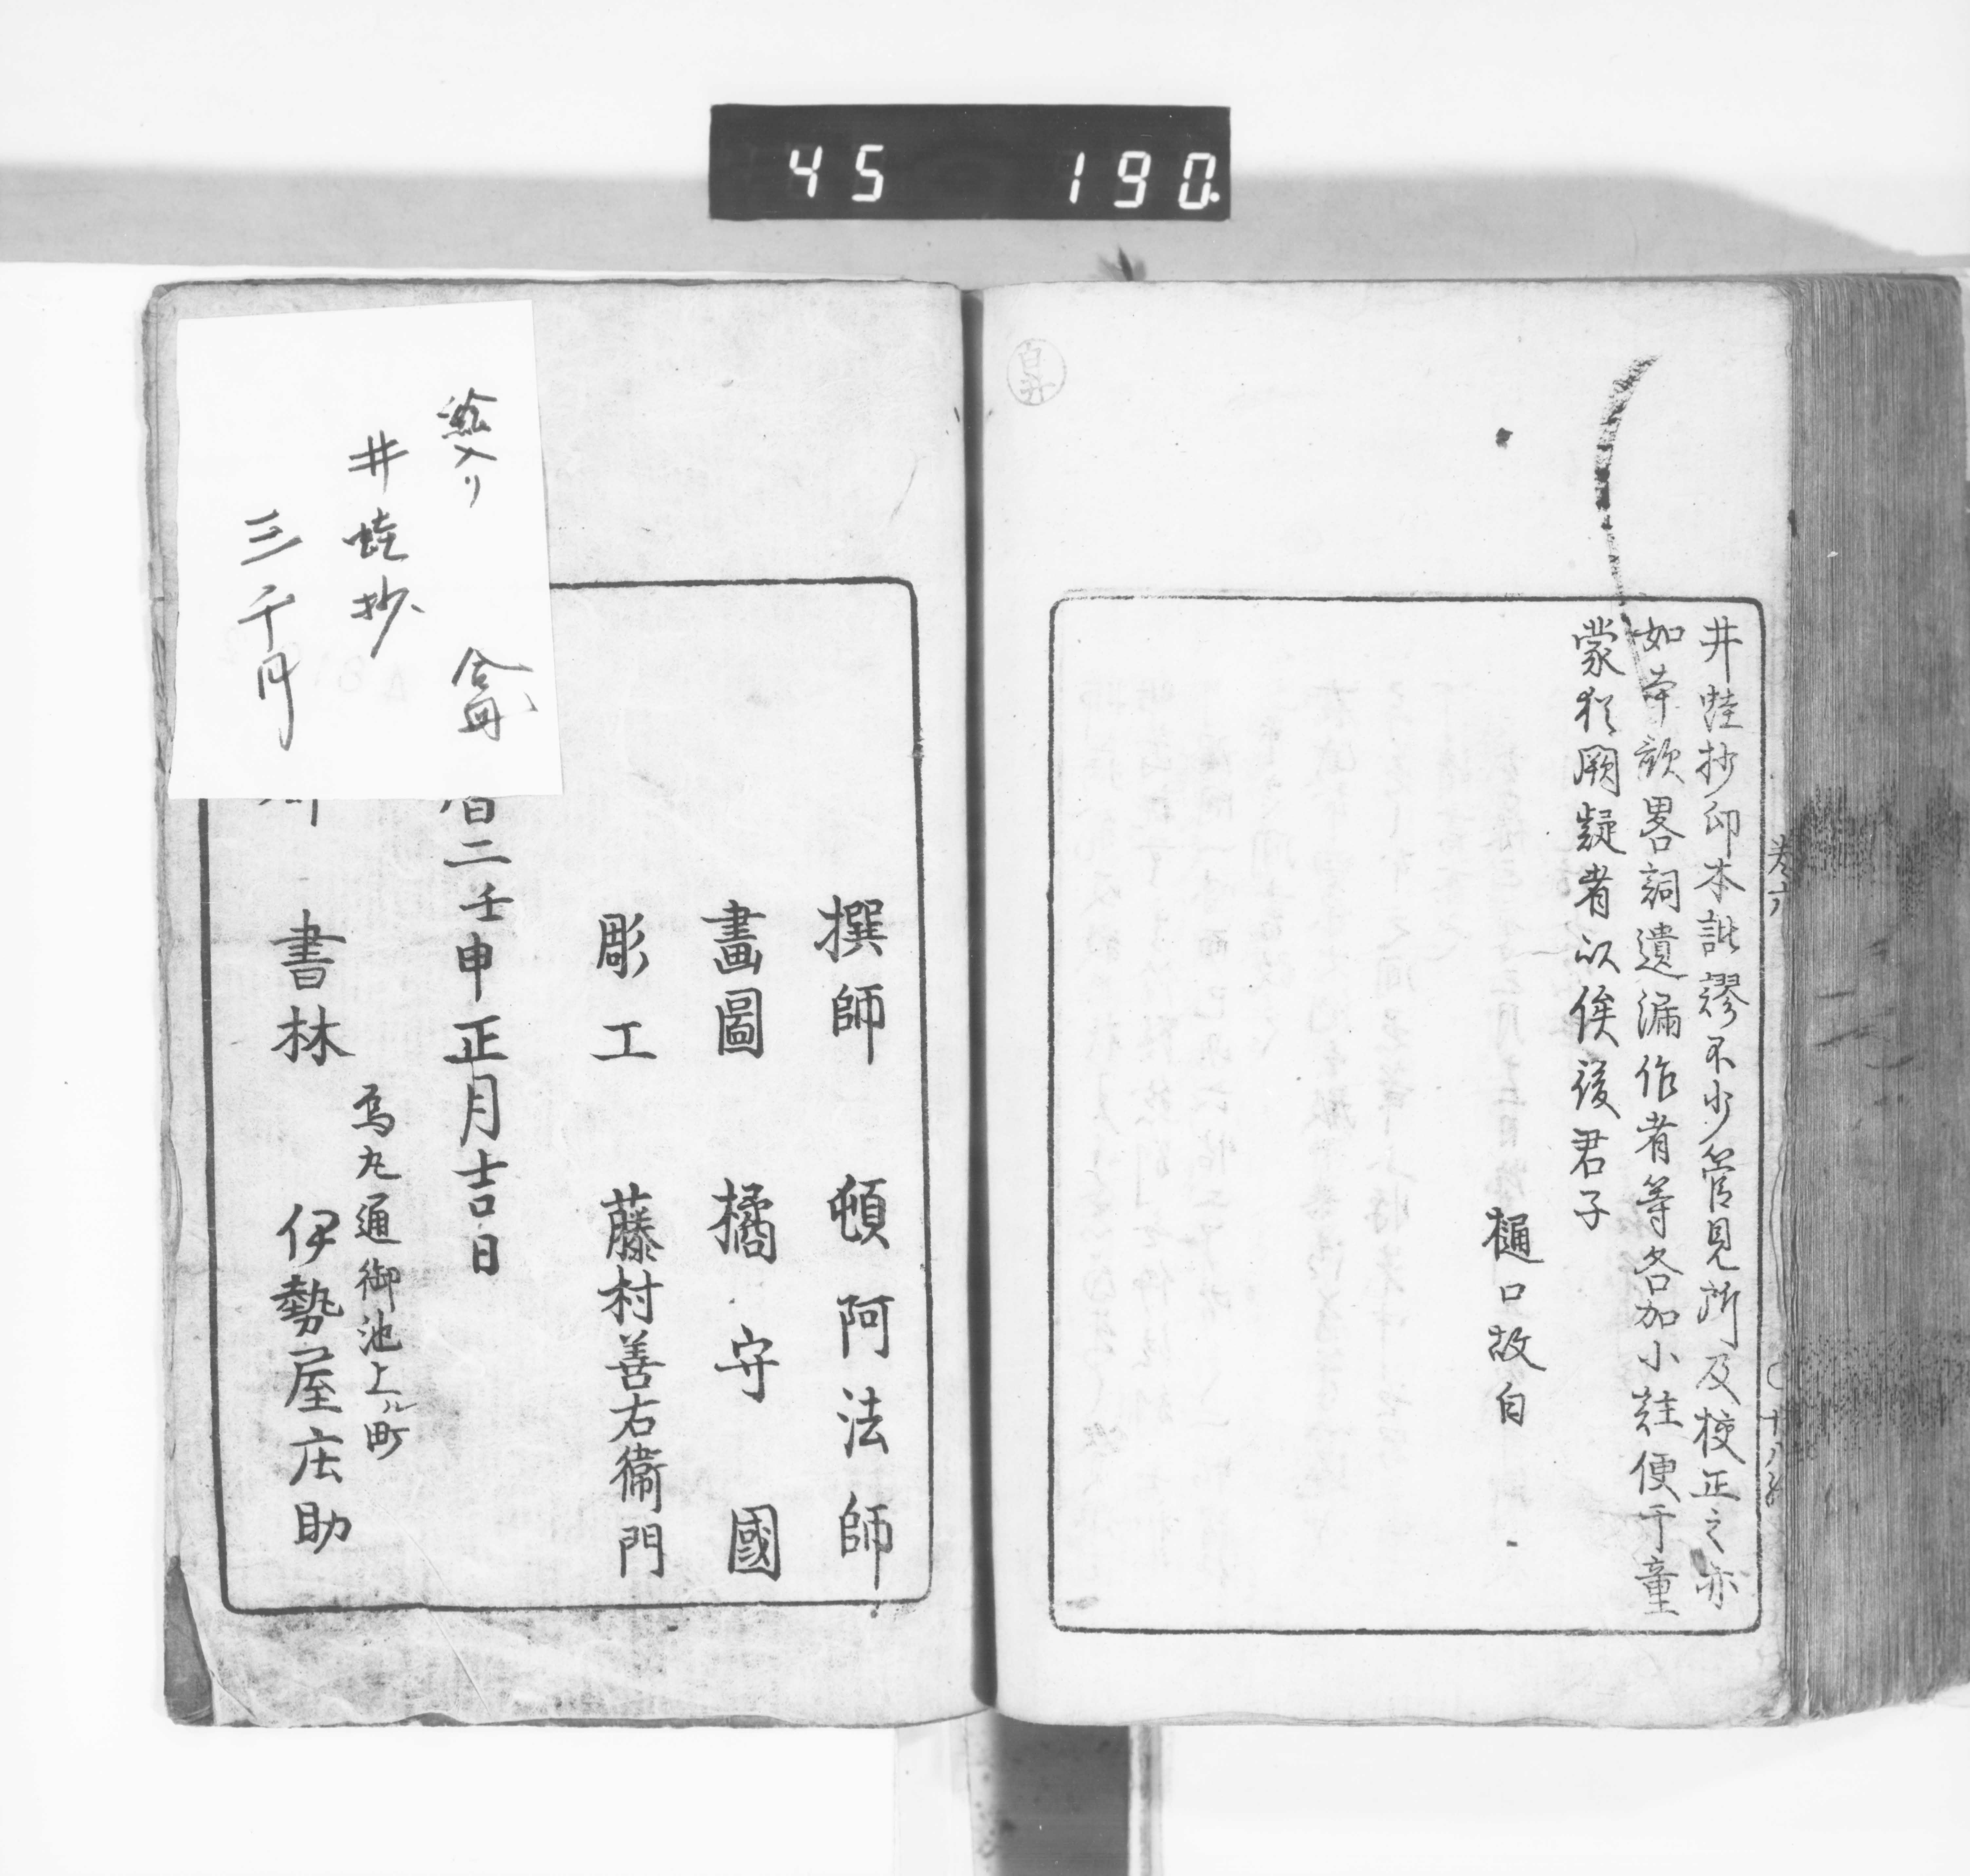 45 190
井蛙抄印本訛謬不少管見所及校正之亦
如本歌畧詞遺漏作者等各加小註便于童
蒙猶闕疑者以俟後君子
樋口故白
撰師 頓阿法師
畫圖 橘守國
彫工 藤村善右衞門
二壬申正月吉日
烏丸通御池上ル町
書林 伊勢屋庄助
絵入り 合冊
井蛙抄
三千円